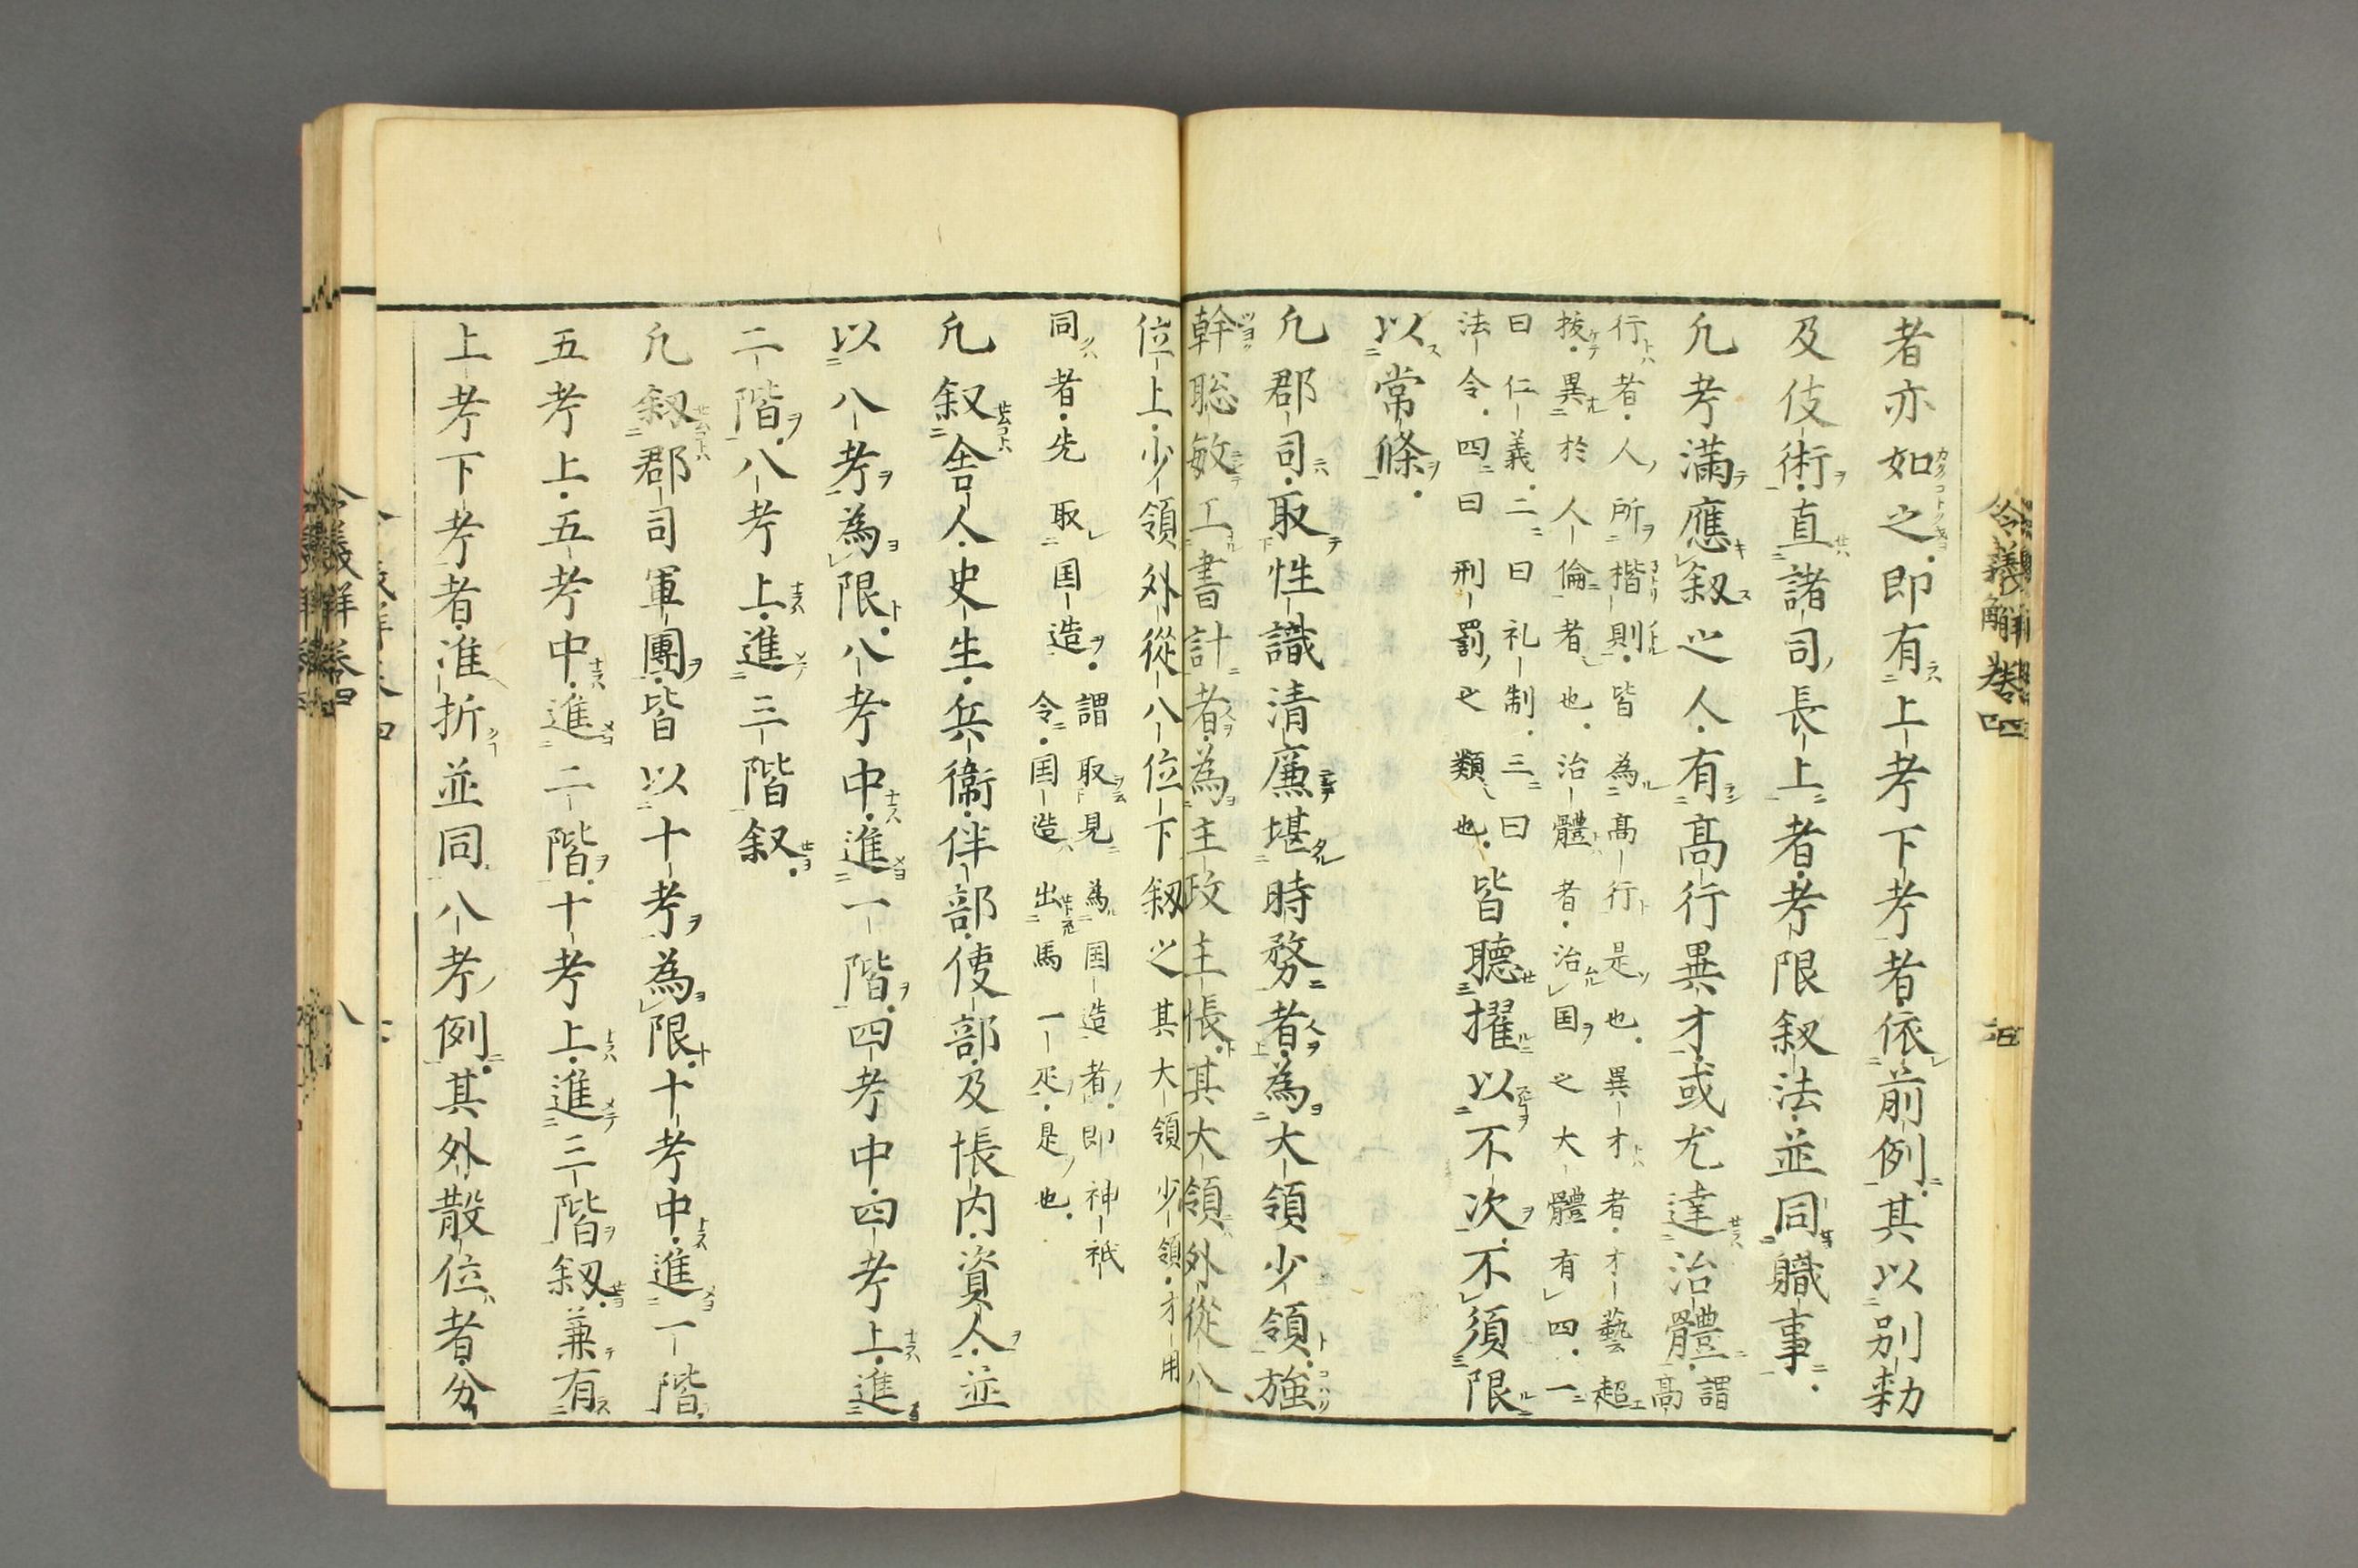 者亦如之即有上考下考者依前例其以别勅
及伎術直諸司長上者考限叙法並同職事
凢考滿應叙之人有髙行異才或尤達治體
謂
髙
行者人所楷則皆為髙行是也異才者才藝超
拔異於人倫者也治體者治国之大體有四一
曰仁義二曰礼制三曰
法令四曰刑罰之類也
皆聽擢以不次不須限
以常條
凢郡司取性識清廉堪時務者為大領少領強
幹聡敏工書計者為主政主帳其大領外從八
位上少領外從八位下叙之
其大領少領才用
同者先取国造
謂取見為国造者即神祇
令国造出馬一疋是也
凢叙舎人史生兵衞伴部使部及帳内資人並
以八考為限八考中進一階四考中四考上進
二階八考上進三階叙
凢叙郡司軍團皆以十考為限十考中進一階
五考上五考中進二階十考上進三階叙兼有
上考下考者准折並同八考例其外散位者分
令義解卷四
八